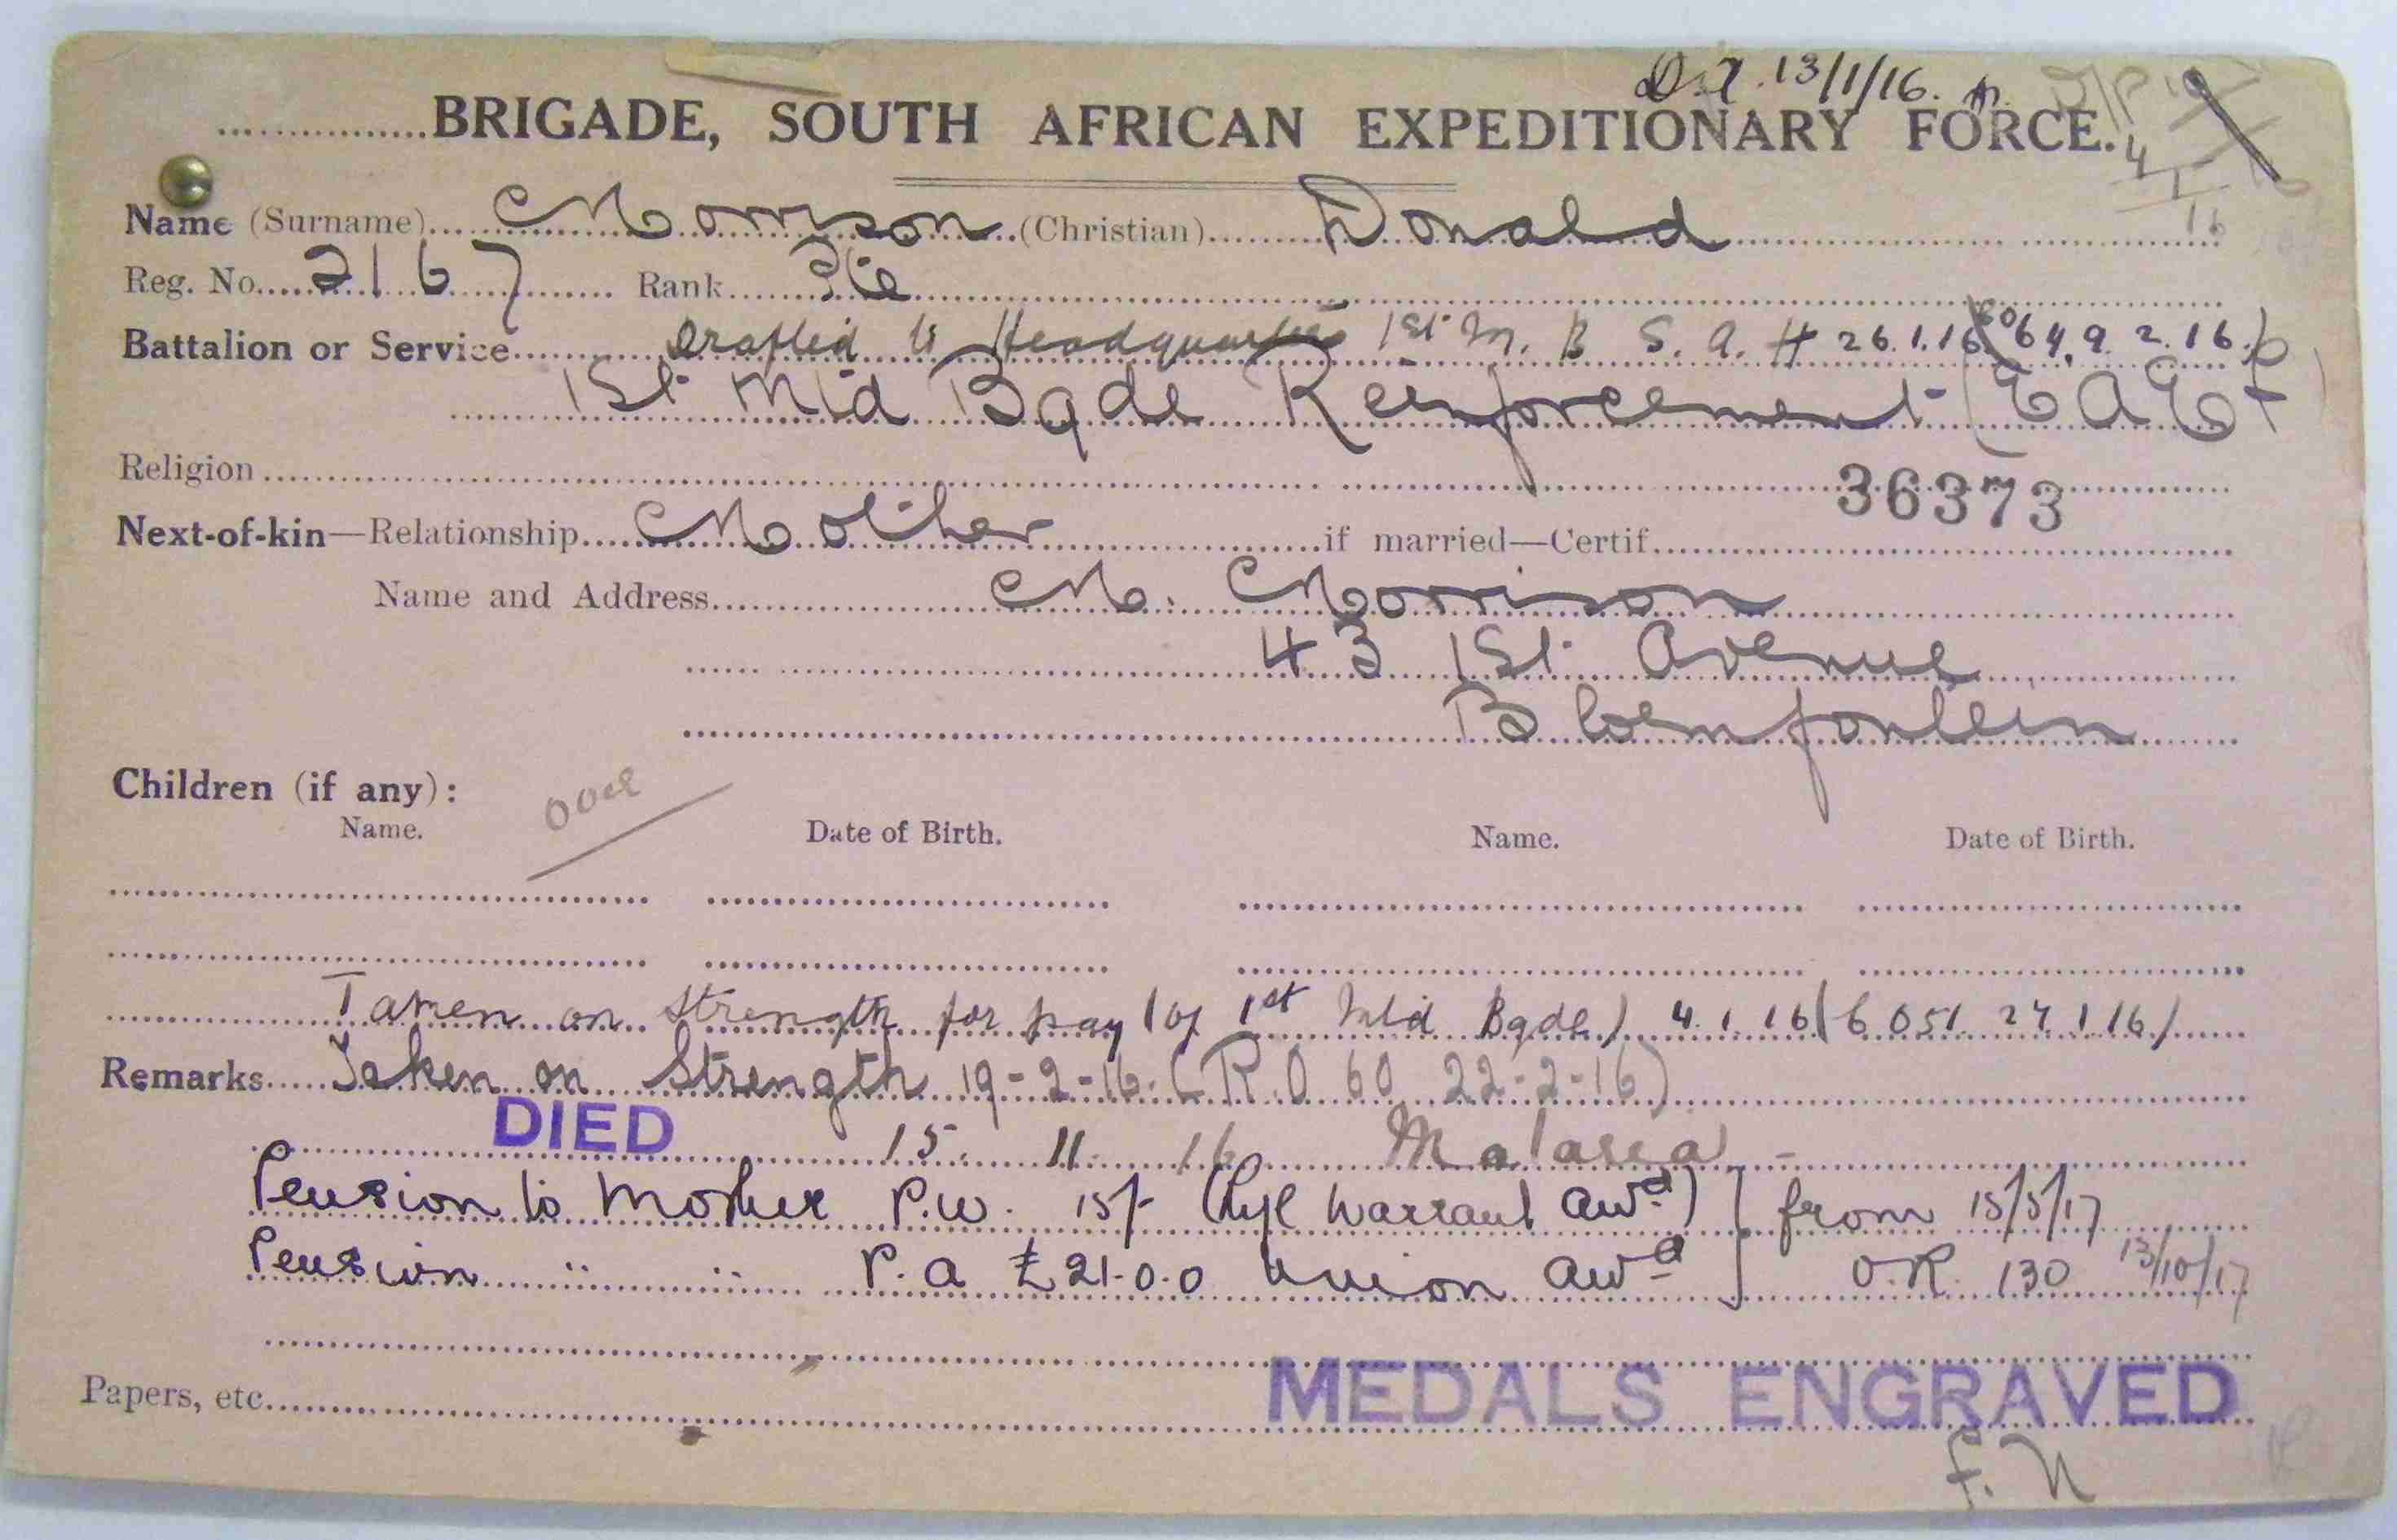 D.A. 13/1/16.
................BRIGADE, SOUTH AFRICAN EXPEDITIONARY FORCE.
4
1
16
Name (Surname)....Morrison....(Christian)....Donald
Reg. No....2167.... Rank....Pte
Battalion or Service....Drafted to Headquarters 1st M. B S. A. H 26.1.16 (60 64, 9. 2. 16.)
1st Mtd Bgde Reinforcement (E A E F)
Religion
36373
Next-of-kin—Relationship....Mother....if married—Certif.
Name and Address....M. Morrison
43 1st Avenue
Bloemfontein
Children (if any):
Name. Date of Birth. Name. Date of Birth.
Taken on Strength for pay (of 1st Mtd Bgde) 4.1.16 (6051 27.1.16)
Remarks....Taken on Strength 19-2-16. (R.O 60 22-2-16)
DIED 15. 11. 16 Malaria -
Pension to Mother P.W. 15/- (Ryl Warrant Awd) ] from 15/5/17
Pension " " P.a £21-0-0 Union Awd ] O.R. 130 13/10/17
Papers, etc.
MEDALS ENGRAVED
F. N